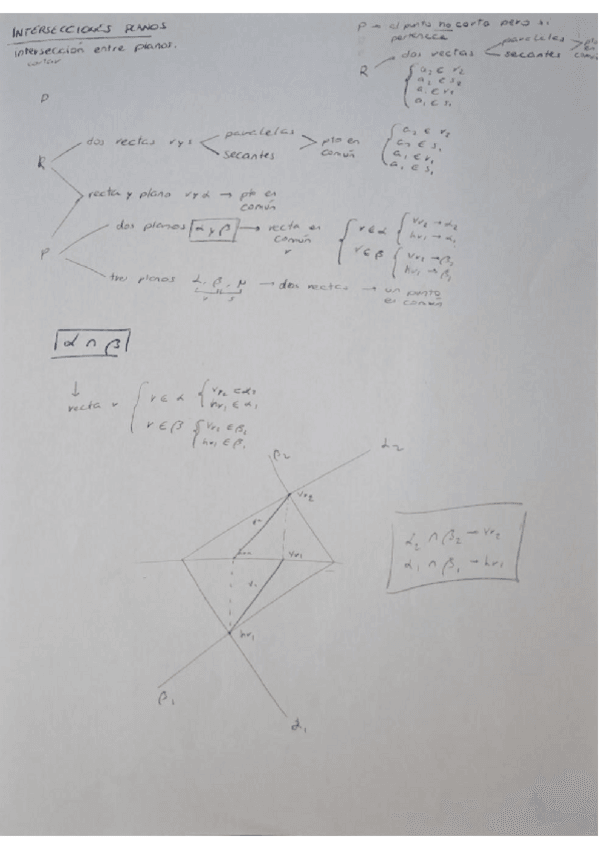 INTERSECCIONES PLANOS
intersección entre planos.
cortar
P → el punto no corta pero si
pertenece
R
dos rectas
paralelas
secantes
pto en común
a2 ∈ r2
a2 ∈ s2
a1 ∈ r1
a1 ∈ s1
P
R
dos rectas r y s
paralelas
secantes
pto en común
a2 ∈ r2
a2 ∈ s2
a1 ∈ r1
a1 ∈ s1
recta y plano r y α → pto en común
P
dos planos α y β → recta en común
r
r ∈ α
vr2 → α2
hr1 → α1
r ∈ β
vr2 → β2
hr1 → β1
tres planos α, β, μ → dos rectas → un punto en común
r s
α ∩ β
↓
recta r
r ∈ α
vr2 ∈ α2
hr1 ∈ α1
r ∈ β
vr2 ∈ β2
hr1 ∈ β1
β2
α2
vr2
vr1
hr1
β1
α1
α2 ∩ β2 → vr2
α1 ∩ β1 → hr1